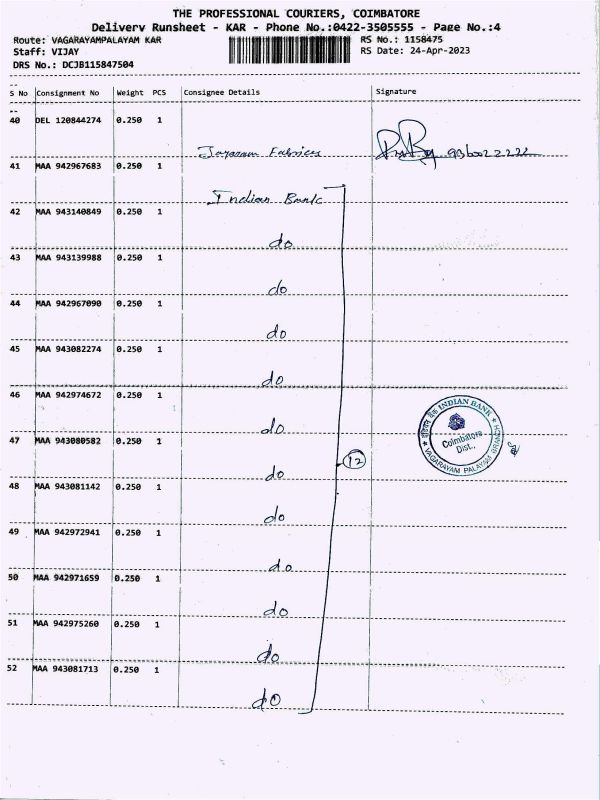 THE PROFESSIONAL COURIERS, COIMBATORE
Delivery Runsheet - KAR - Phone No.:0422-3505555 - Page No.:4
Route: VAGARAYAMPALAYAM KAR
RS No.: 1158475
Staff: VIJAY
RS Date: 24-Apr-2023
DRS No.: DCJB115847504
S No Consignment No Weight PCS Consignee Details Signature
40 DEL 120844274 0.250 1
Jayaram Fabrics
41 MAA 942967683 0.250 1
Indian Bank
42 MAA 943140849 0.250 1
do
43 MAA 943139988 0.250 1
do
44 MAA 942967090 0.250 1
do
45 MAA 943082274 0.250 1
do
46 MAA 942974672 0.250 1
do
47 MAA 943080582 0.250 1
12
do
48 MAA 943081142 0.250 1
do
49 MAA 942972941 0.250 1
do
50 MAA 942971659 0.250 1
do
51 MAA 942975260 0.250 1
do
52 MAA 943081713 0.250 1
do
इंडियन बैंक INDIAN BANK
Coimbatore
Dist.,
VAGARAYAM PALAYAM BRANCH